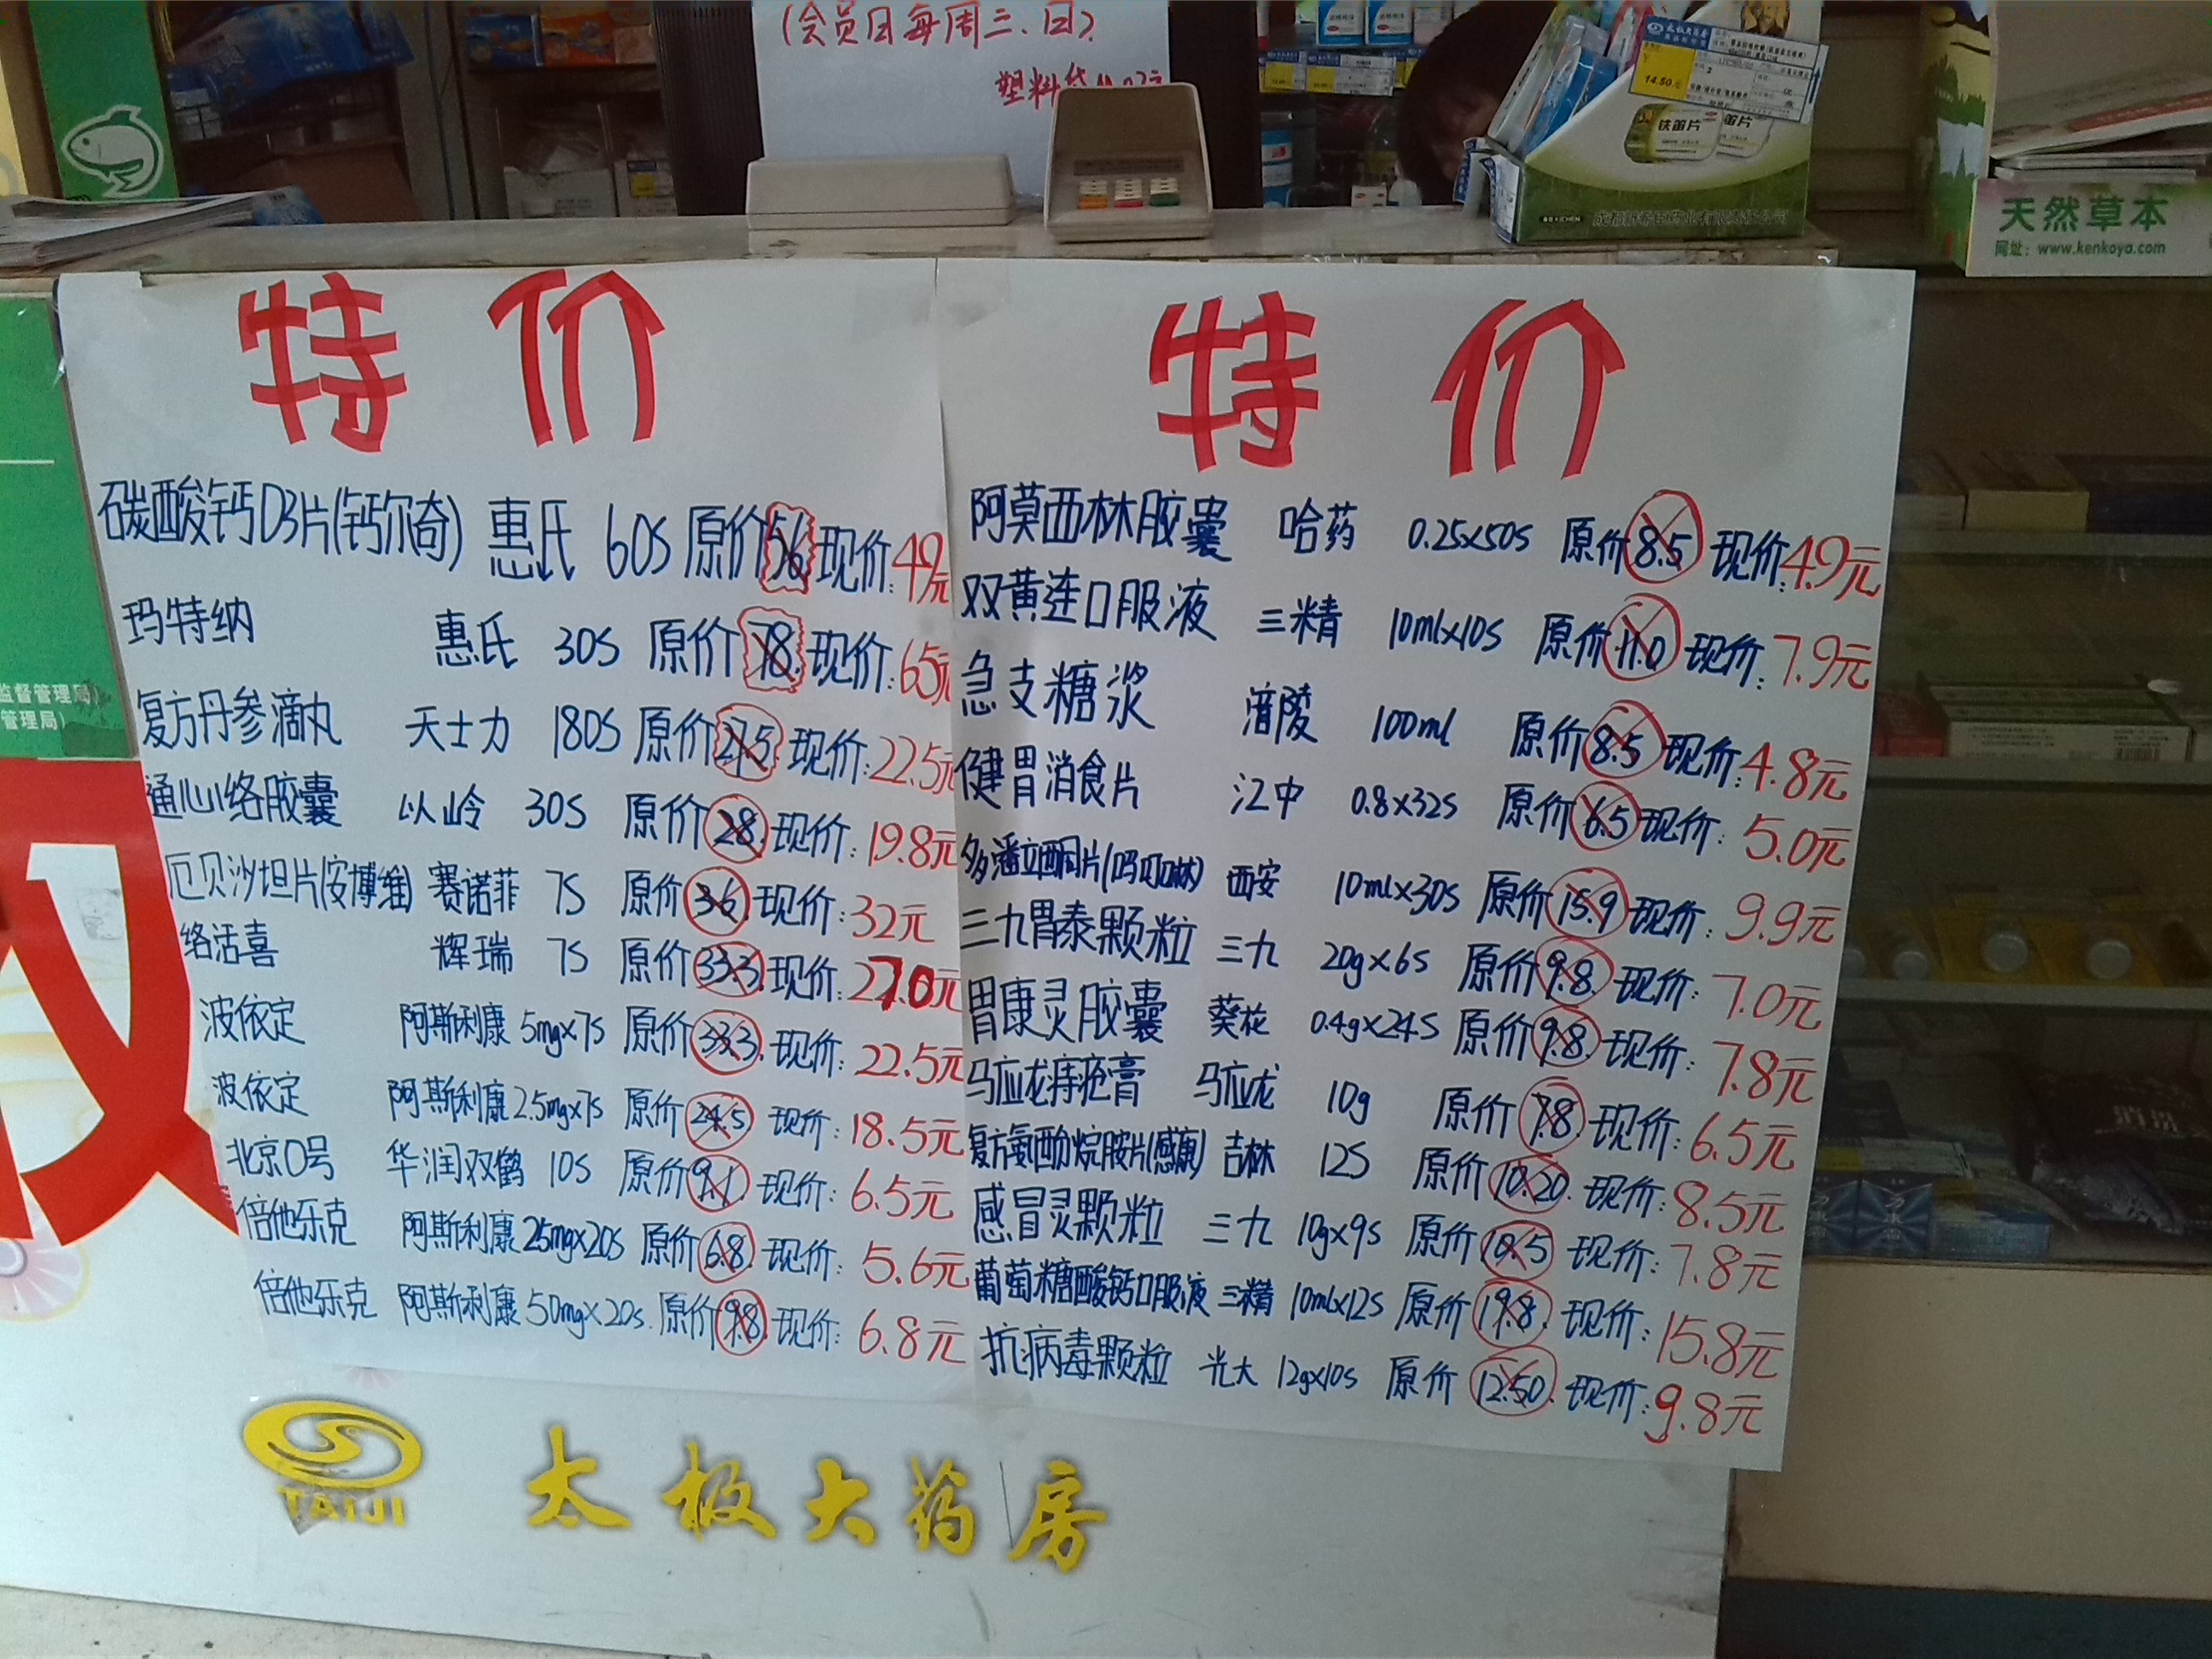 (会员日每周三、日)
塑料袋
太极大药房
14.50元
铁笛片
天然草本
网址：www.kenkoya.com
监督管理局)
管理局)
特价
碳酸钙D3片(钙尔奇) 惠氏 60S 原价56 现价:49元
玛特纳 惠氏 30S 原价78 现价:65元
复方丹参滴丸 天士力 180S 原价27.5 现价:22.5元
通心络胶囊 以岭 30S 原价28 现价:19.8元
厄贝沙坦片(安博维) 赛诺菲 7S 原价36 现价:32元
络活喜 辉瑞 7S 原价33.3 现价:27.0元
波依定 阿斯利康 5mg×7S 原价33.3 现价:22.5元
波依定 阿斯利康 2.5mg×7s 原价24.5 现价:18.5元
北京0号 华润双鹤 10S 原价9.1 现价:6.5元
倍他乐克 阿斯利康 25mg×20S 原价6.8 现价:5.6元
倍他乐克 阿斯利康 50mg×20s. 原价9.8 现价:6.8元
特价
阿莫西林胶囊 哈药 0.25×50S 原价8.5 现价:4.9元
双黄连口服液 三精 10ml×10S 原价11.0 现价:7.9元
急支糖浆 涪陵 100ml 原价8.5 现价:4.8元
健胃消食片 江中 0.8×32S 原价6.5 现价:5.0元
多潘立酮片(吗叮啉) 西安 10ml×30S 原价15.9 现价:9.9元
三九胃泰颗粒 三九 20g×6S 原价9.8 现价:7.0元
胃康灵胶囊 葵花 0.4g×24S 原价9.8 现价:7.8元
马应龙痔疮膏 马应龙 10g 原价7.8 现价:6.5元
复方氨酚烷胺片(感康) 吉林 12S 原价10.20 现价:8.5元
感冒灵颗粒 三九 10g×9S 原价10.5 现价:7.8元
葡萄糖酸钙口服液 三精 10ml×12S 原价19.8 现价:15.8元
抗病毒颗粒 光大 12g×10S 原价12.50 现价:9.8元
TAIJI 太极大药房